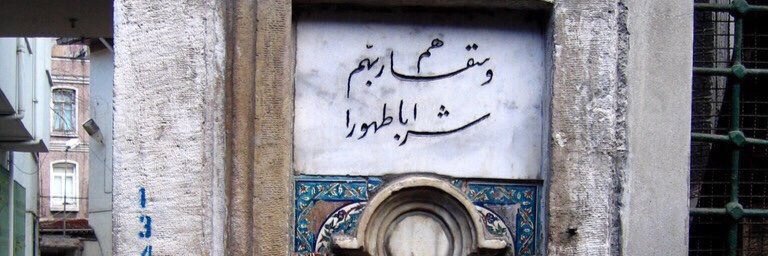 وسقاهم ربّهم
شرابا طهورا
134